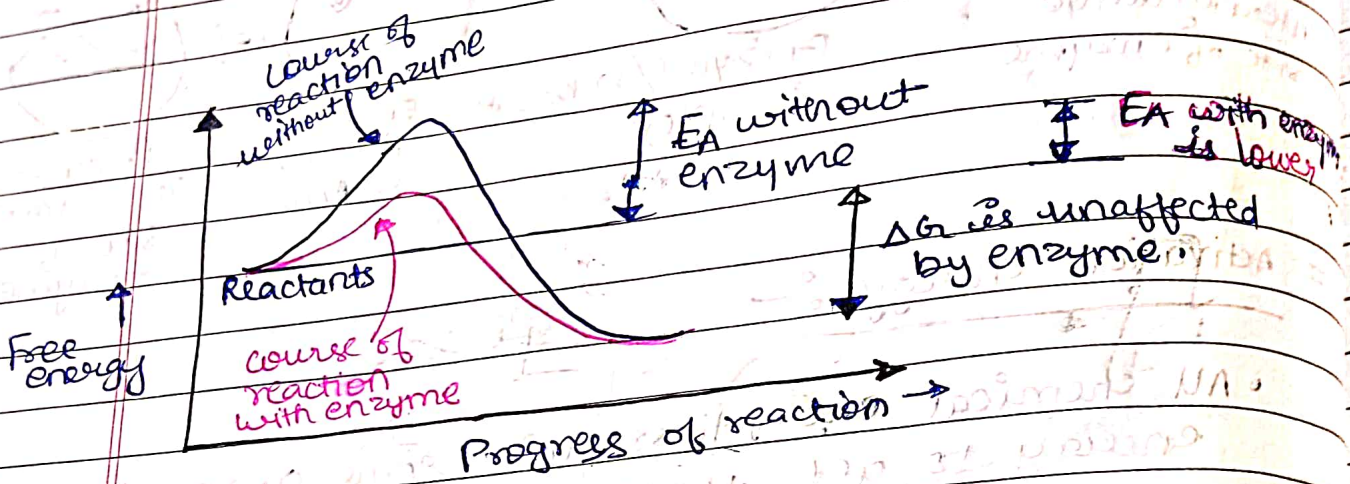 course of
reaction
without enzyme
EA without
enzyme
EA with enzym
is lower
ΔG is unaffected
by enzyme.
Reactants
Free
energy
course of
reaction
with enzyme
Progress of reaction